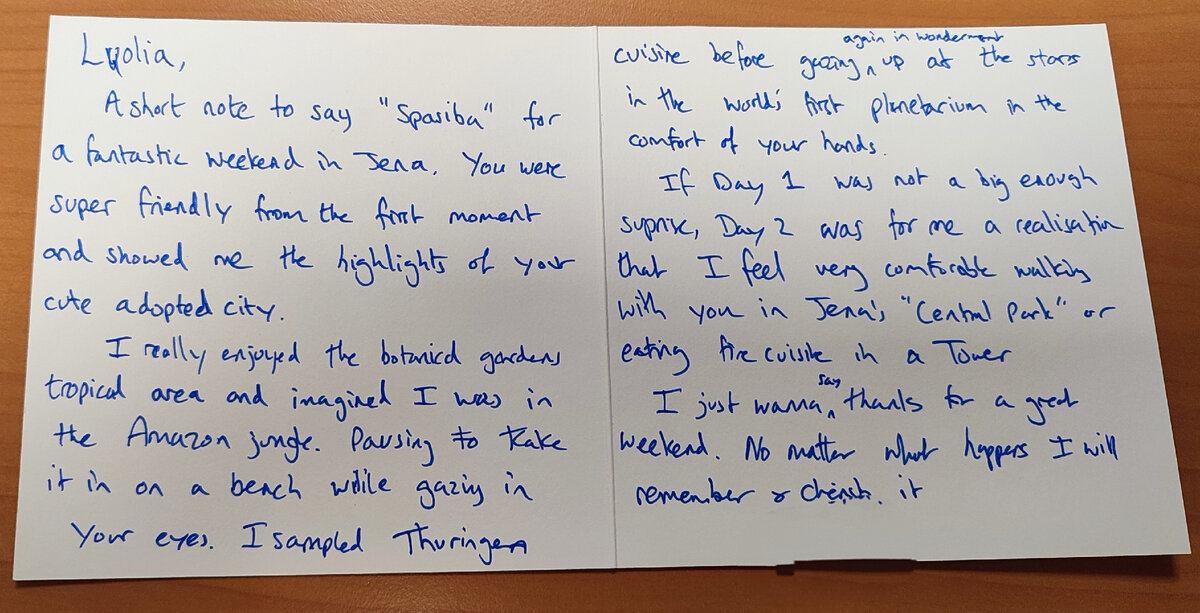 Lyolia,
A short note to say "Spasiba" for
a fantastic weekend in Jena. You were
super friendly from the first moment
and showed me the highlights of your
cute adopted city.
I really enjoyed the botanical gardens
tropical area and imagined I was in
the Amazon jungle. Pausing to take
it in on a bench while gazing in
your eyes. I sampled Thuringen
cuisine before gazing again in wonderment up at the stars
in the world's first planetarium in the
comfort of your hands.
If Day 1 was not a big enough
suprise, Day 2 was for me a realisation
that I feel very comforable walking
with you in Jena's "Central Park" or
eating fine cuisine in a Tower
I just wanna say thanks for a great
weekend. No matter what happens I will
remember & cherish. it